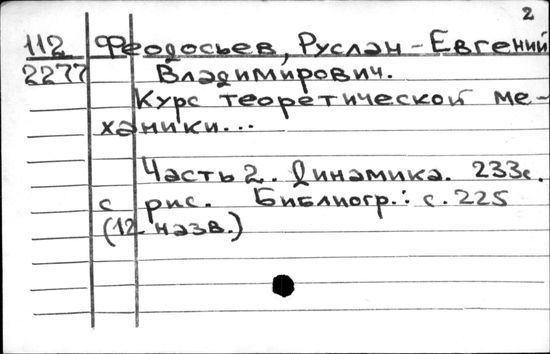 2
112 Феодосьев, Руслан-Евгений
2277 Владимирович.
Курс теоретической ме-
ханики...
Часть 2. Динамика. 233с.
с рис. Библиогр.: с. 225
(12 назв.)